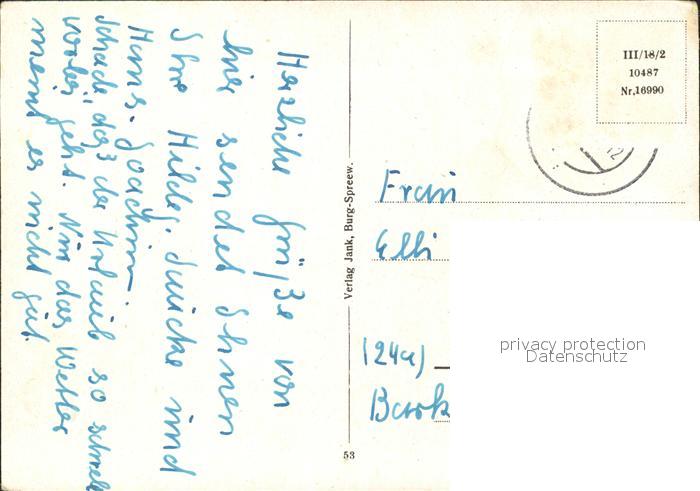 Herzliche Grüße von
hier sendet Ihnen
Ihre Hildeg. und
Hans-Joachim
Schade, daß der Urlaub so schnell
vorbei geht. Nur das Wetter
meint es nicht gut.
Verlag Jank, Burg-Spreew.
53
III/18/2
10487
Nr. 16990
Frau
Elli
(24a)
privacy protection
Datenschutz